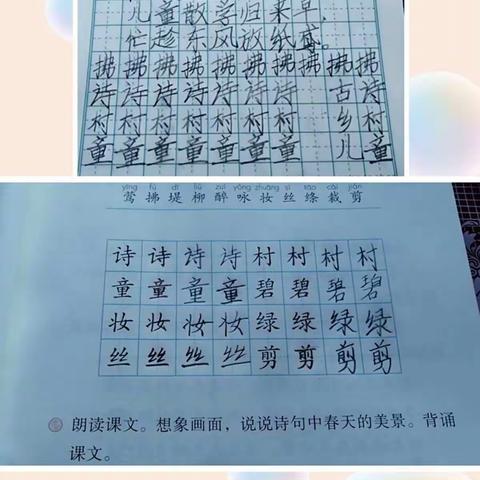 儿童散学归来早,
忙趁东风放纸鸢。
拂拂拂拂拂拂拂 拂拂
诗诗诗诗诗诗 古诗
村村村村村村 乡村
童童童童童童 儿童
yīng fú dī liǔ zuì yǒng zhuāng sī tāo cái jiǎn
莺拂堤柳醉咏妆丝绦裁剪
诗诗诗诗村村村村
童童童童碧碧碧碧
妆妆妆妆绿绿绿绿
丝丝丝丝剪剪剪剪
朗读课文。想象画面，说说诗句中春天的美景。背诵
课文。